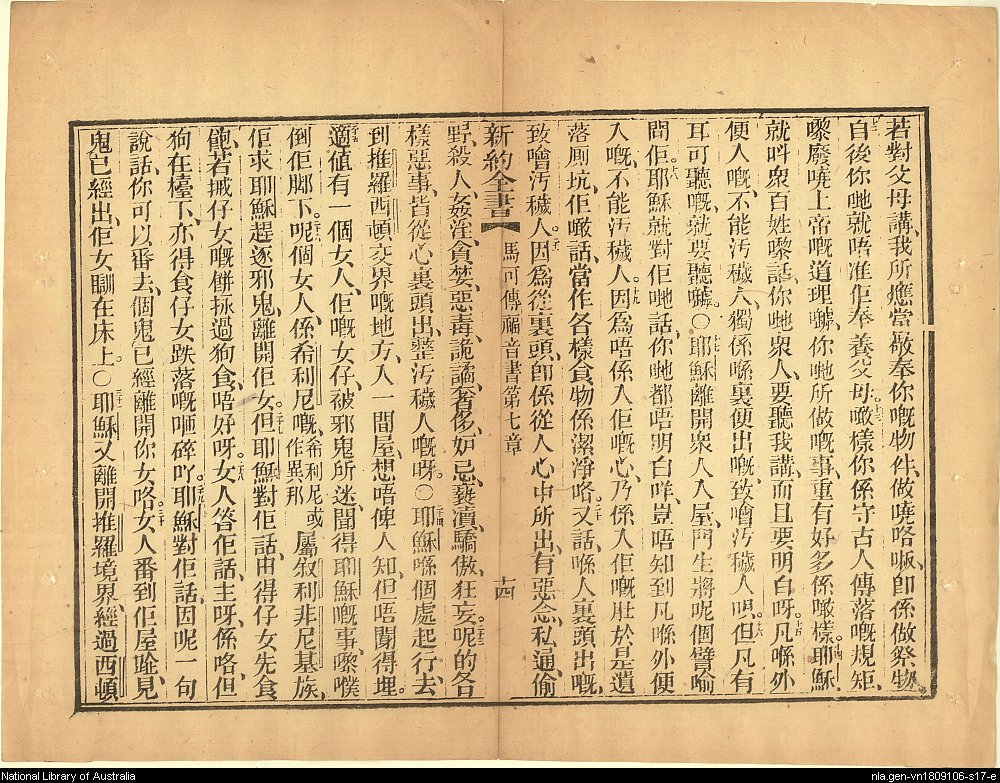 若對父母講、我所應當敬奉你嘅物件、做嘵咯㗎、卽係做祭物、
自後你哋就唔准佢奉養父母。十三噉樣你係守古人傳落嘅規矩、
嚟廢嘵上帝嘅道理囉、你哋所做嘅事、重有好多係噉樣。十四耶穌
就呌衆百姓嚟話、你哋衆人、要聽我講、而且要明白呀。十五凡喺外
便入嘅、不能汚穢人、獨係喺裏便出嘅、致噲汚穢人呮、十六但凡有
耳可聽嘅、就要聽囉。○十七耶穌離開衆人入屋、門生將呢個譬喻
問佢。十八耶穌就對佢哋話、你哋都唔明白咩、豈唔知到凡喺外便
入嘅、不能汚穢人。十九因爲唔係入佢嘅心、乃係入佢嘅肚、於是遺
落厠坑、佢噉話、當作各樣食物係潔凈咯。二十又話、喺人裏頭出、
致噲汚穢人。廿一因爲從裏頭、卽係從人心中所出、有惡念、私通、偷
野、殺人、姦淫、貪婪、惡毒、詭譎、奢侈、妒忌、褻瀆、驕傲、狂妄。廿三呢的各
樣惡事、皆從心裏頭出、整汚穢人嘅呀。○廿四耶穌喺個處起行、去
到推羅西頓交界嘅地方、入一間屋、想唔俾人知、但唔聞得埋。
廿五適値有一個女人、佢嘅女仔、被邪鬼所迷、聞得耶穌嘅事、嚟㒒
倒佢脚下。廿六呢個女人係希利尼嘅、希利尼或作異邦屬叙利非尼基族、
佢求耶穌趕逐邪鬼離開佢女。廿七但耶穌對佢話、由得仔女先食
飽、若攞仔女嘅餅掭過狗食、唔好呀。廿八女人答佢話、主呀、係咯、但
狗在檯下、亦得食仔女跌落嘅哂碎吖。廿九耶穌對佢話、因呢一句
說話、你可以番去、個鬼已經離開你女咯。三十女人番到佢屋、睮見
鬼已經出、佢女瞓在床上。○卅一耶穌又離開推羅境界、經過西頓
新約全書 馬可傳福音書第七章 十四
National Library of Australia
nla.gen-vn1809106-s17-e